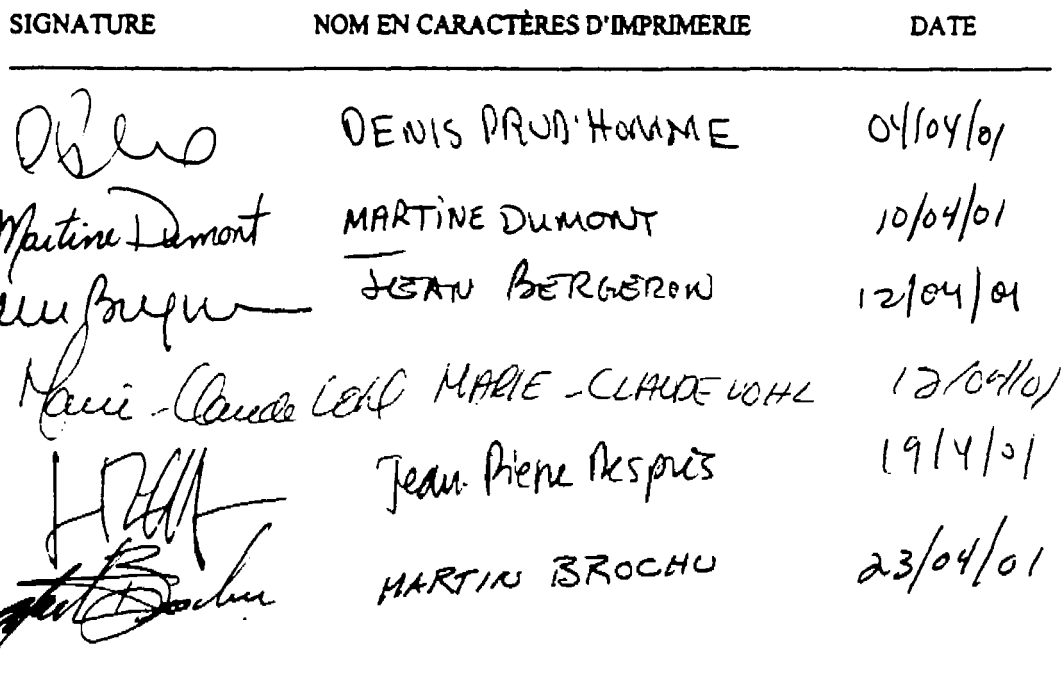 SIGNATURE NOM EN CARACTÈRES D'IMPRIMERIE DATE
DENIS PRUD'HOMME 04/04/01
Martine Dumont MARTINE DUMONT 10/04/01
JEAN BERGERON 12/04/01
Marie-Claude Vohl MARIE-CLAUDE VOHL 12/04/01
Jean-Pierre Després 19/4/01
Brochu MARTIN BROCHU 23/04/01